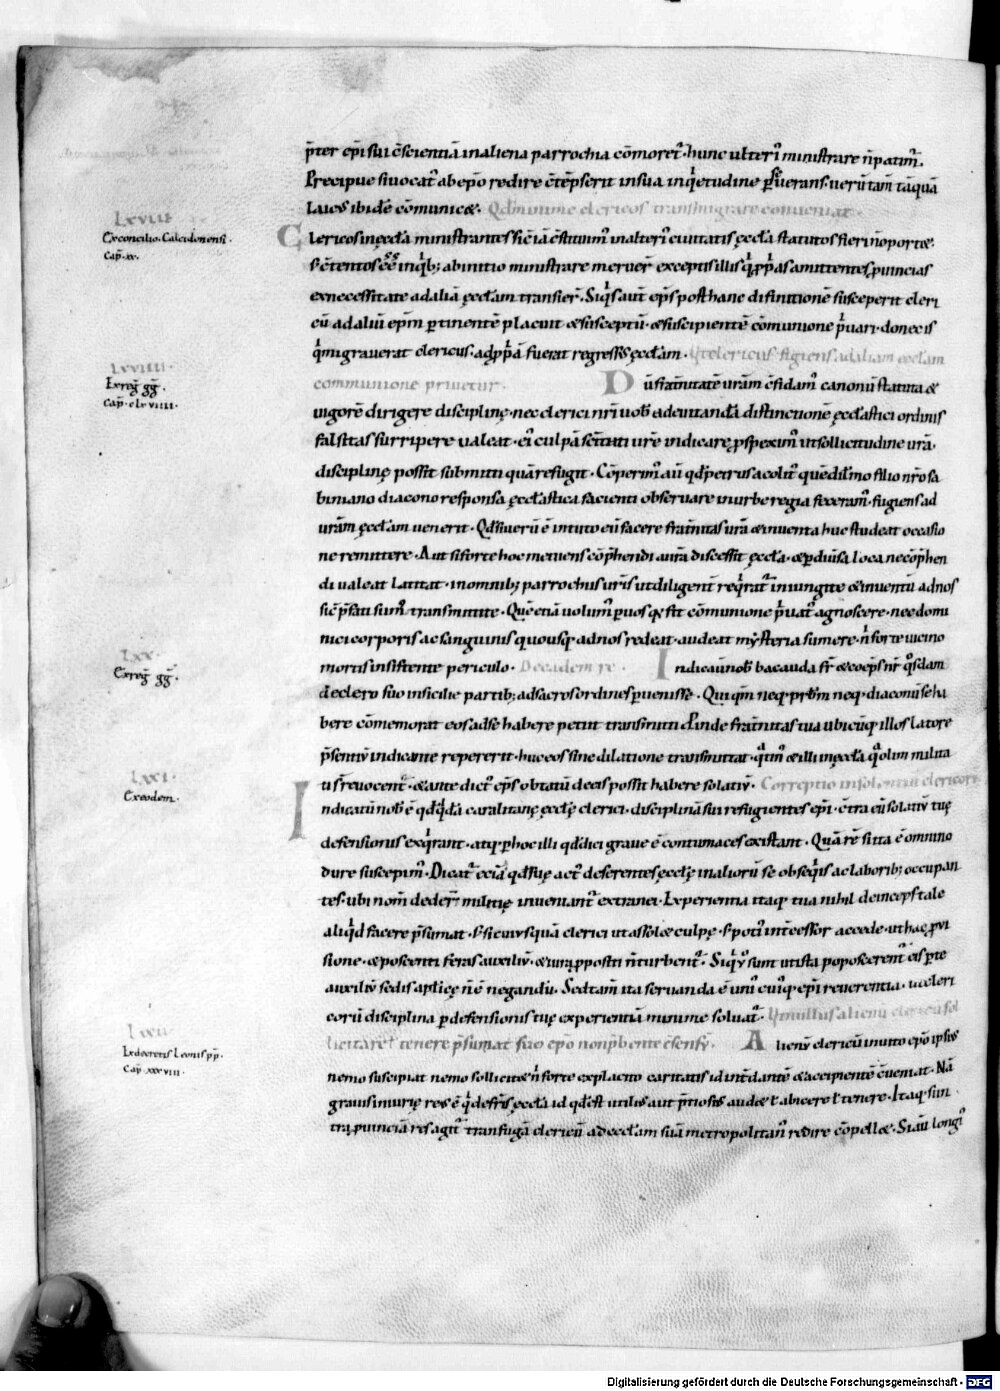 p̄ter ep̄i sui c̄scientiā in aliena parrochia cōmoret᷑. hunc ulteri᷑ ministrare n̄ patim᷑.
Precipue si uocat᷑ ab ep̄o redire c̄tēpserit in sua inq'etudine pseuerans. uerūtam̄ tāquā
Laicus ibidē cōmunicet. Qd̄ minime clericos transmigrare conueniat.
LXVIII
Ex concilio Calcidonensi.
Cap. xx.
Clericos in ęccl̄a ministrantes sic̄ iā c̄stituim᷑ in alteri᷑ ciuitatis ęccl̄a statutos fieri n̄ oportet.
s; c̄tentos ēē in q'b; ab initio ministrare meruer̄. exceptis illis q' p̄pas amittentes puincias
ex necessitate ad aliā ęccl̄am transier̄. Si q's aut̄ ep̄s post hanc difinitionē susceperit cleri
cū ad aliū ep̄m ptinentē placuit & susceptū. & suscipientē cōmunione p'uari. donec is
q' migrauerat clericus. ad pp'ā fuerat regressus ęccl̄am. Ut clericus fugiens ad aliam ecclam
LXVIIII
Ex reḡ gḡ.
Cap. clxviiii.
communione priuetur. Dū frat̄nitatē urām c̄fidam᷑ canonū statuta &
uigorē dirigere disciplinę. nec clerici nr̄i uob̄ ad euitandā districtionē ęccl̄astici ordinis
falsitas surripere ualeat. ei culpā sc̄titati urē indicare pspexim᷑ ut sollicitudine urā.
disciplinę possit submitti quā refugit. Cōperim᷑ aū qd̄ petrus acolit᷑ quē dil̄mo filio nr̄o sa
biniano diacono responsa ęccl̄astica facienti obseruare in urbe regia feceram᷑. fugiens ad
urām ęccl̄am uenerit. Qd̄ si uerū ē intuto eū facere frat̄nitas urā & inuenta huc studeat occasio
ne remittere. Aut si forte hoc metuens cōp̄hendi a urā discessit ęccl̄a. & p diuisa loca ne cōp̄hen
di ualeat latitat. in omnib; parrochiis uris ut diligent̄ req'rat᷑ iniungite & inuentū ad nos
sic̄ p̄fati sum᷑ transmittite. Quē etiā uolum᷑ p uos q& fit cōmunione p'uat᷑ agnoscere. nec domi
nici corporis ac sanguinis quousq; ad nos redeat. audeat mysteria sumere. n' forte uicino
LXX.
Ex reḡ gḡ.
mortis insistente periculo. De eadem re. Indicauit nob̄ bacauda fr̄ & coep̄s nr̄ q'sdam
de clero suo in sicilie partib; ad sacros ordines puenisse. Qui qm̄ neq; pr̄bm neq; diaconū se ha
bere cōmemorat eos ad se habere petiit transmitti. Proinde frat̄nitas tua ubicūq; illos latore
p̄sentiū indicante reppererit. huc eos sine dilatione transmittat. q'tin᷑ & illi in ęccl̄a q' olim milita
LXXI.
Ex eodem.
us̄ reuocent᷑. & ante dict᷑ ep̄s obtatū de eis possit habere solatiū. Correptio insolentium clericorum
Indicatū nob̄ ē qd̄ q'dā caralitanę ęccl̄ę clerici. disciplinā sui refugientes ep̄i. c̄tra eū solatiū tuę
defensionis exq'rant. atq; p hoc illi qd̄ dici graue ē contumaces existant. Quā rē si ita ē omnino
dure suscepim᷑. Dicat᷑ eciā qd̄ suę act᷑ deserentes ęccl̄ę in aliorū se obseq'is ac laborib; occupan
tes. ubi nom̄ deder̄ militię inueniant᷑ extranei. Experientia itaq; tua nihil deinceps tale
aliq'd facere p̄sumat. s; si cuiusquā clerici ut assolet culpę. s; poti᷑ int̄cessor accede. ut hac pui
sione. & poscenti feras auxiliū. & iura ppositi n̄ turbent᷑. Si q' u̇ sunt ut ista poposcerent᷑ eis pte
auxiliū sedis aplicę n̄ ē negandū. Sed tam̄ ita seruanda ē uni᷑cuiq; ep̄i reuerentia. ut cleri
corū disciplina p defensionis tuę experientiā minime soluat᷑. Ut nullus alienū clericū sol
LXXII
Ex decretis Leonis pp.
Cap. xxxviiii.
licitare ł tenere p̄sumat suo ep̄o non p̄bente c̄sensū. Alienū clericū inuito ep̄o ipsius
nemo suscipiat nemo sollicitet n' forte ex placito caritatis id int̄ dantē & accipientē c̄ueniat. Nā
grauis iniurię res ē q' de fr̄is ęccl̄a id qd̄ ē ut utilius aut p̄tiosius audet ł abicere ł tenere. Itaq; si in
tra puinciā res agit᷑ transfugā clericū ad eccl̄am suā metropolitan᷑ redire cōpellet. Si aū longi᷑
Digitalisierung gefördert durch die Deutsche Forschungsgemeinschaft - DFG